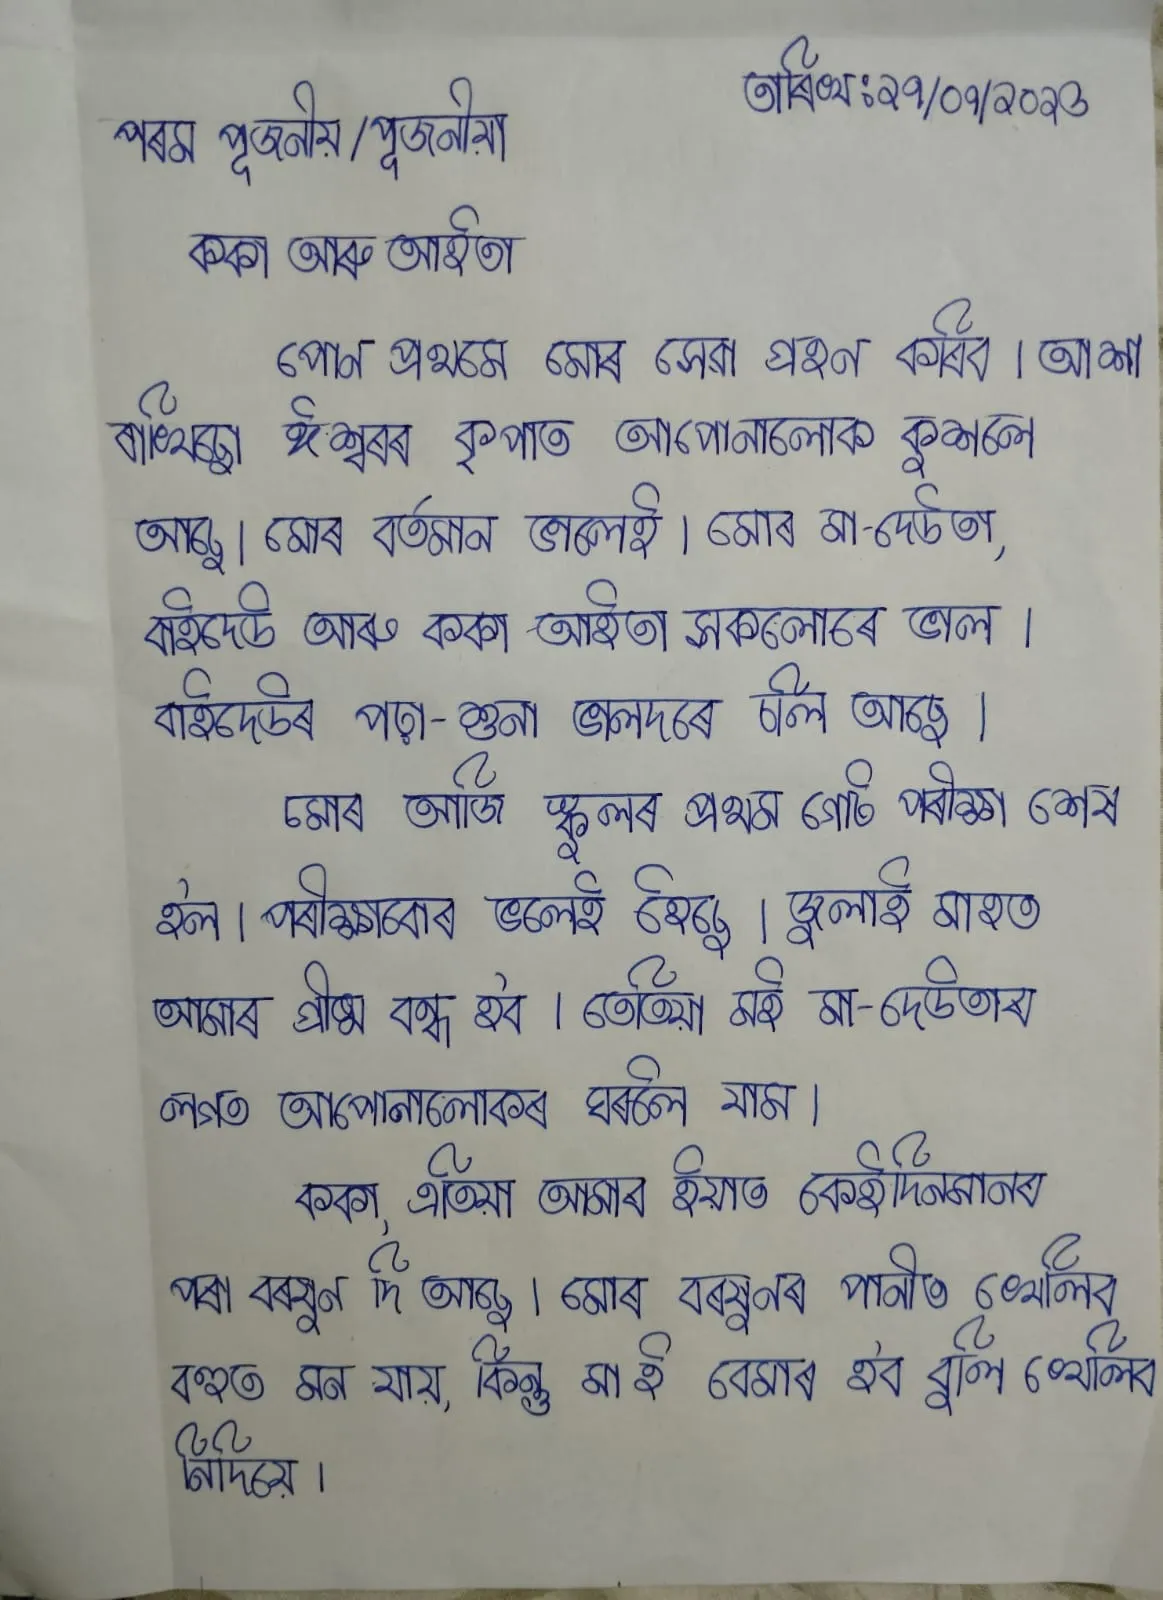 তাৰিখ : ২৭/০৭/২০২৩
পৰম পূজনীয়/পূজনীয়া
ককা আৰু আইতা
পোন প্ৰথমে মোৰ সেৱা গ্ৰহন কৰিব । আশা
ৰাখিছো ঈশ্বৰৰ কৃপাত আপোনালোক কুশলে
আছে । মোৰ বৰ্তমান ভালেই । মোৰ মা-দেউতা,
বাইদেউ আৰু ককা আইতা সকলোৰে ভাল ।
বাইদেউৰ পঢ়া-শুনা ভালদৰে চলি আছে ।
মোৰ আজি স্কুলৰ প্ৰথম গোট পৰীক্ষা শেষ
হ'ল । পৰীক্ষাবোৰ ভালেই হৈছে । জুলাই মাহত
আমাৰ গ্ৰীষ্ম বন্ধ হ'ব । তেতিয়া মই মা-দেউতাৰ
লগত আপোনালোকৰ ঘৰলৈ যাম ।
ককা, এতিয়া আমাৰ ইয়াত কেইদিনমানৰ
পৰা বৰষুন দি আছে । মোৰ বৰষুনৰ পানীত খেলিব
বহুত মন যায়, কিন্তু মা ই বেমাৰ হ'ব বুলি খেলিব
নিদিয়ে ।